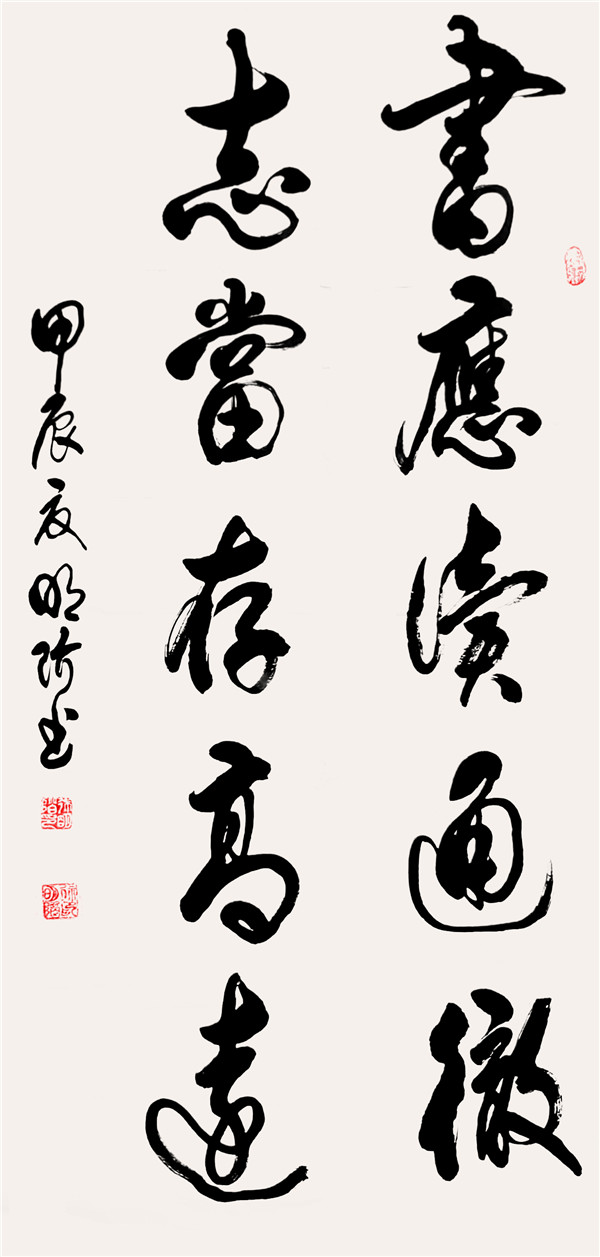 書應讀通徹
志當存高遠
甲辰夏明階书